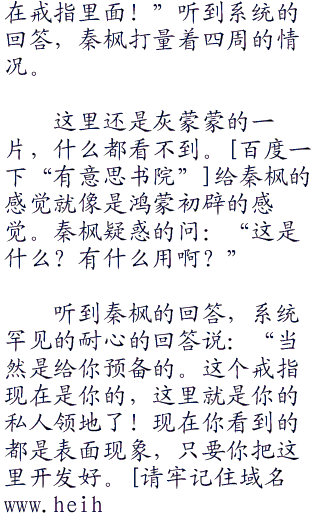 在戒指里面！”听到系统的
回答，秦枫打量着四周的情
况。
这里还是灰蒙蒙的一
片，什么都看不到。[百度一
下“有意思书院”]给秦枫的
感觉就像是鸿蒙初辟的感
觉。秦枫疑惑的问：“这是
什么？有什么用啊？”
听到秦枫的回答，系统
罕见的耐心的回答说：“当
然是给你预备的。这个戒指
现在是你的，这里就是你的
私人领地了！现在你看到的
都是表面现象，只要你把这
里开发好。[请牢记住域名
www.heih